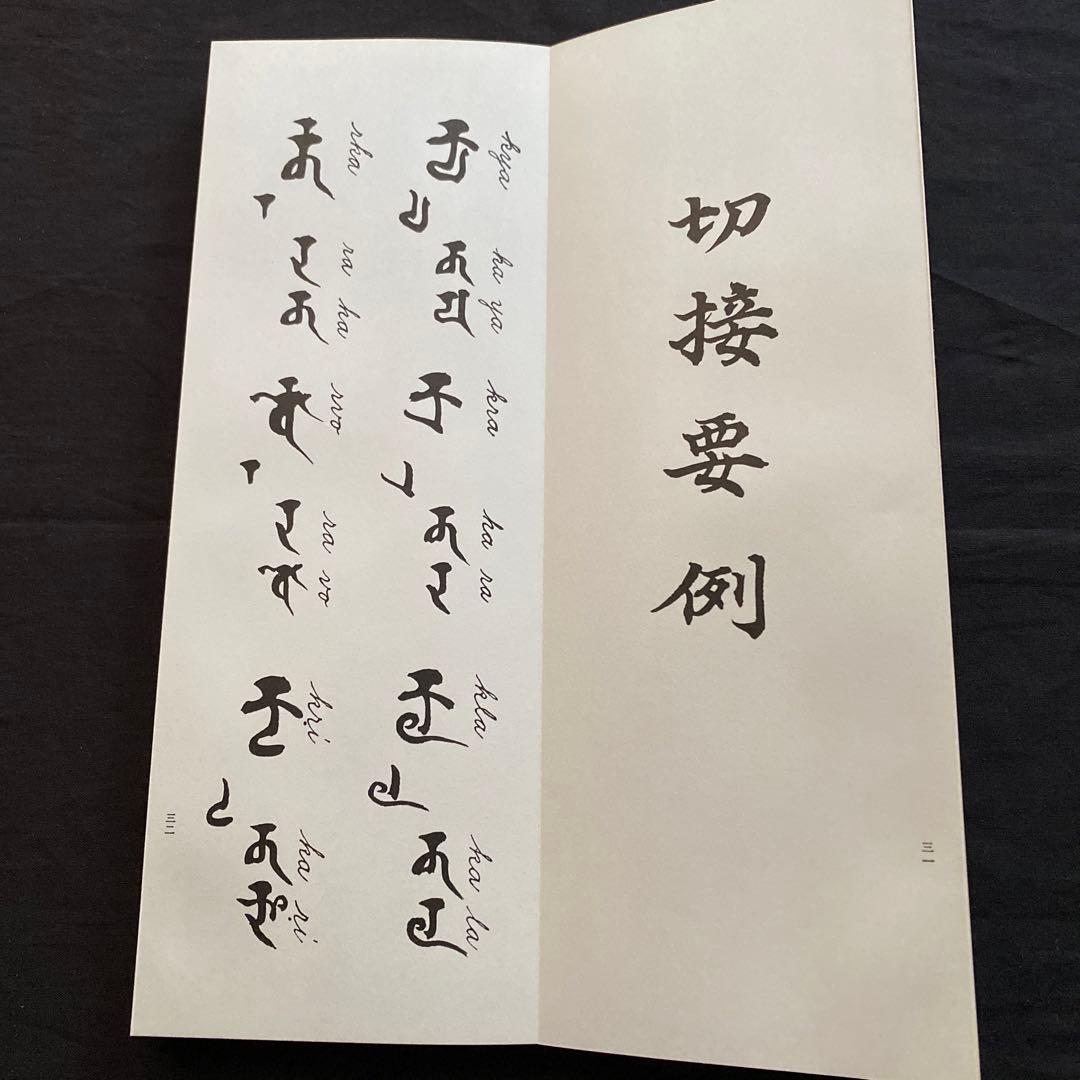 切接要例
三一
kya ka ya kra ka ra kla ka la
𑖎𑖿𑖧 𑖎 𑖧 𑖎𑖿𑖨 𑖎 𑖨 𑖎𑖿𑖩 𑖎 𑖩
rka ra ka rvo ra vo kṛi ka ṛi
𑖨𑖿𑖎 𑖨 𑖎 𑖨𑖿𑖪𑖺 𑖨 𑖪𑖺 𑖎𑖴 𑖎 𑖆
三二